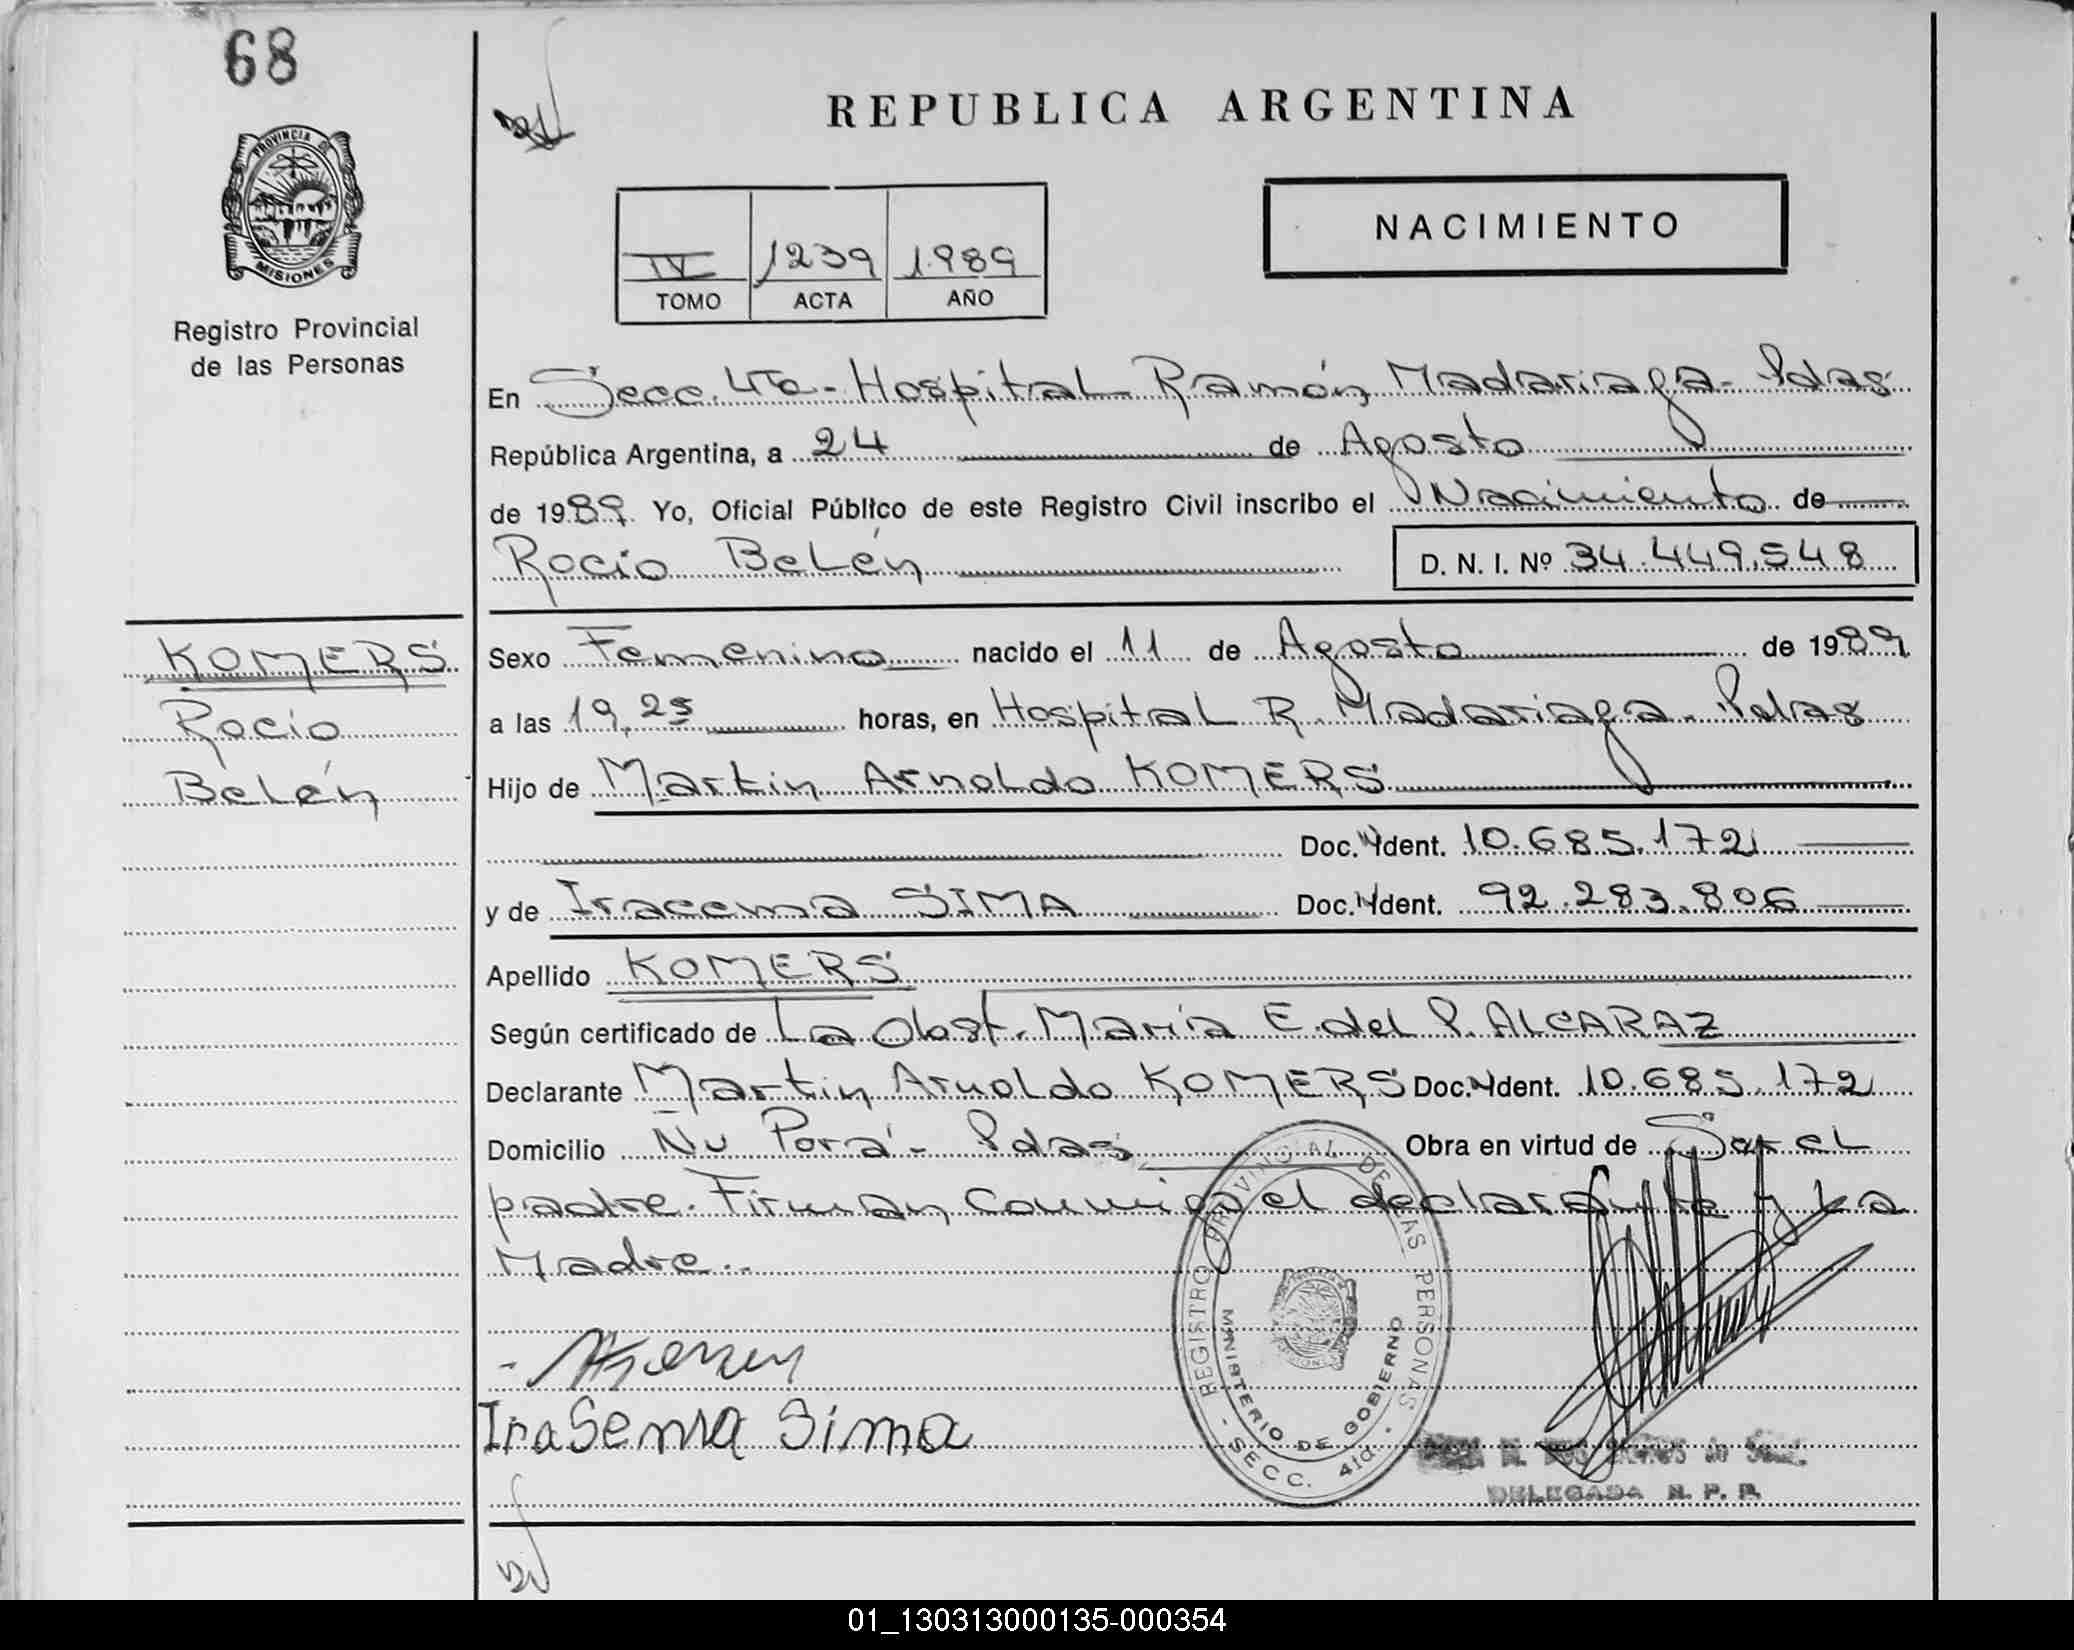 68
REPUBLICA ARGENTINA
PROVINCIA DE
MISIONES
Registro Provincial
de las Personas
IV 1239 1989
TOMO ACTA AÑO
NACIMIENTO
En Secc. 4ta - Hospital Ramón Madariaga - Pdas
República Argentina, a 24 de Agosto
de 1989. Yo, Oficial Público de este Registro Civil inscribo el Nacimiento de
Rocío Belén
D. N. I. Nº 34.449.548
KOMERS
Rocío
Belén
Sexo Femenino nacido el 11 de Agosto de 1989
a las 19,25 horas, en Hospital R. Madariaga - Pdas
Hijo de Martin Arnoldo KOMERS
Doc. Ident. 10.685.172
y de Iracema SIMA Doc. Ident. 92.283.806
Apellido KOMERS
Según certificado de La Obst. María E. del P. ALCARAZ
Declarante Martin Arnoldo KOMERS Doc. Ident. 10.685.172
Domicilio Ñu Porá - Pdas Obra en virtud de Ser el
padre. Firman conmigo el declarante y La
Madre..
IraSema Sima
REGISTRO PROVINCIAL DE LAS PERSONAS
MINISTERIO DE GOBIERNO
- SECC. 4ta -
DELEGADA R. P. P.
01_130313000135-000354